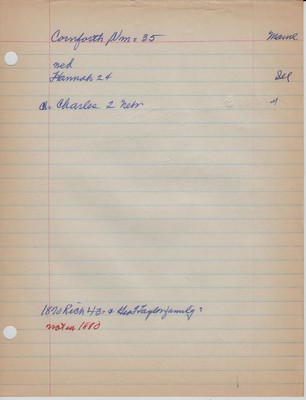 Cornforth Wm = 35 Maine
ned
Hannah 24 Ill
ch. Charles 2 Nebr 1
1870 Rich 43- & Taylor family =
not in 1880